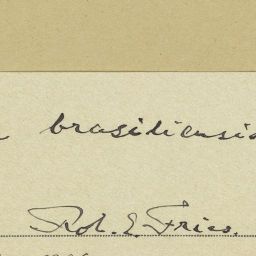 brasiliensis
Rob. E. Fries.